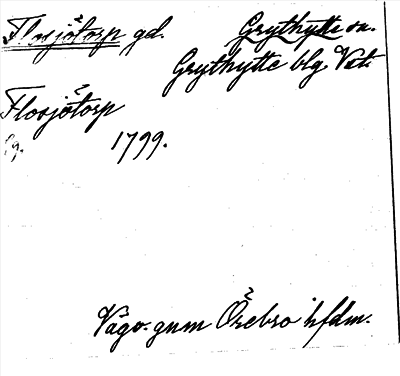 Flosjötorp gd. Grythytte sn.
Grythytte blg Vstm.
Flosjötorp
1799.
Vägv. gnm Örebro hfdm.